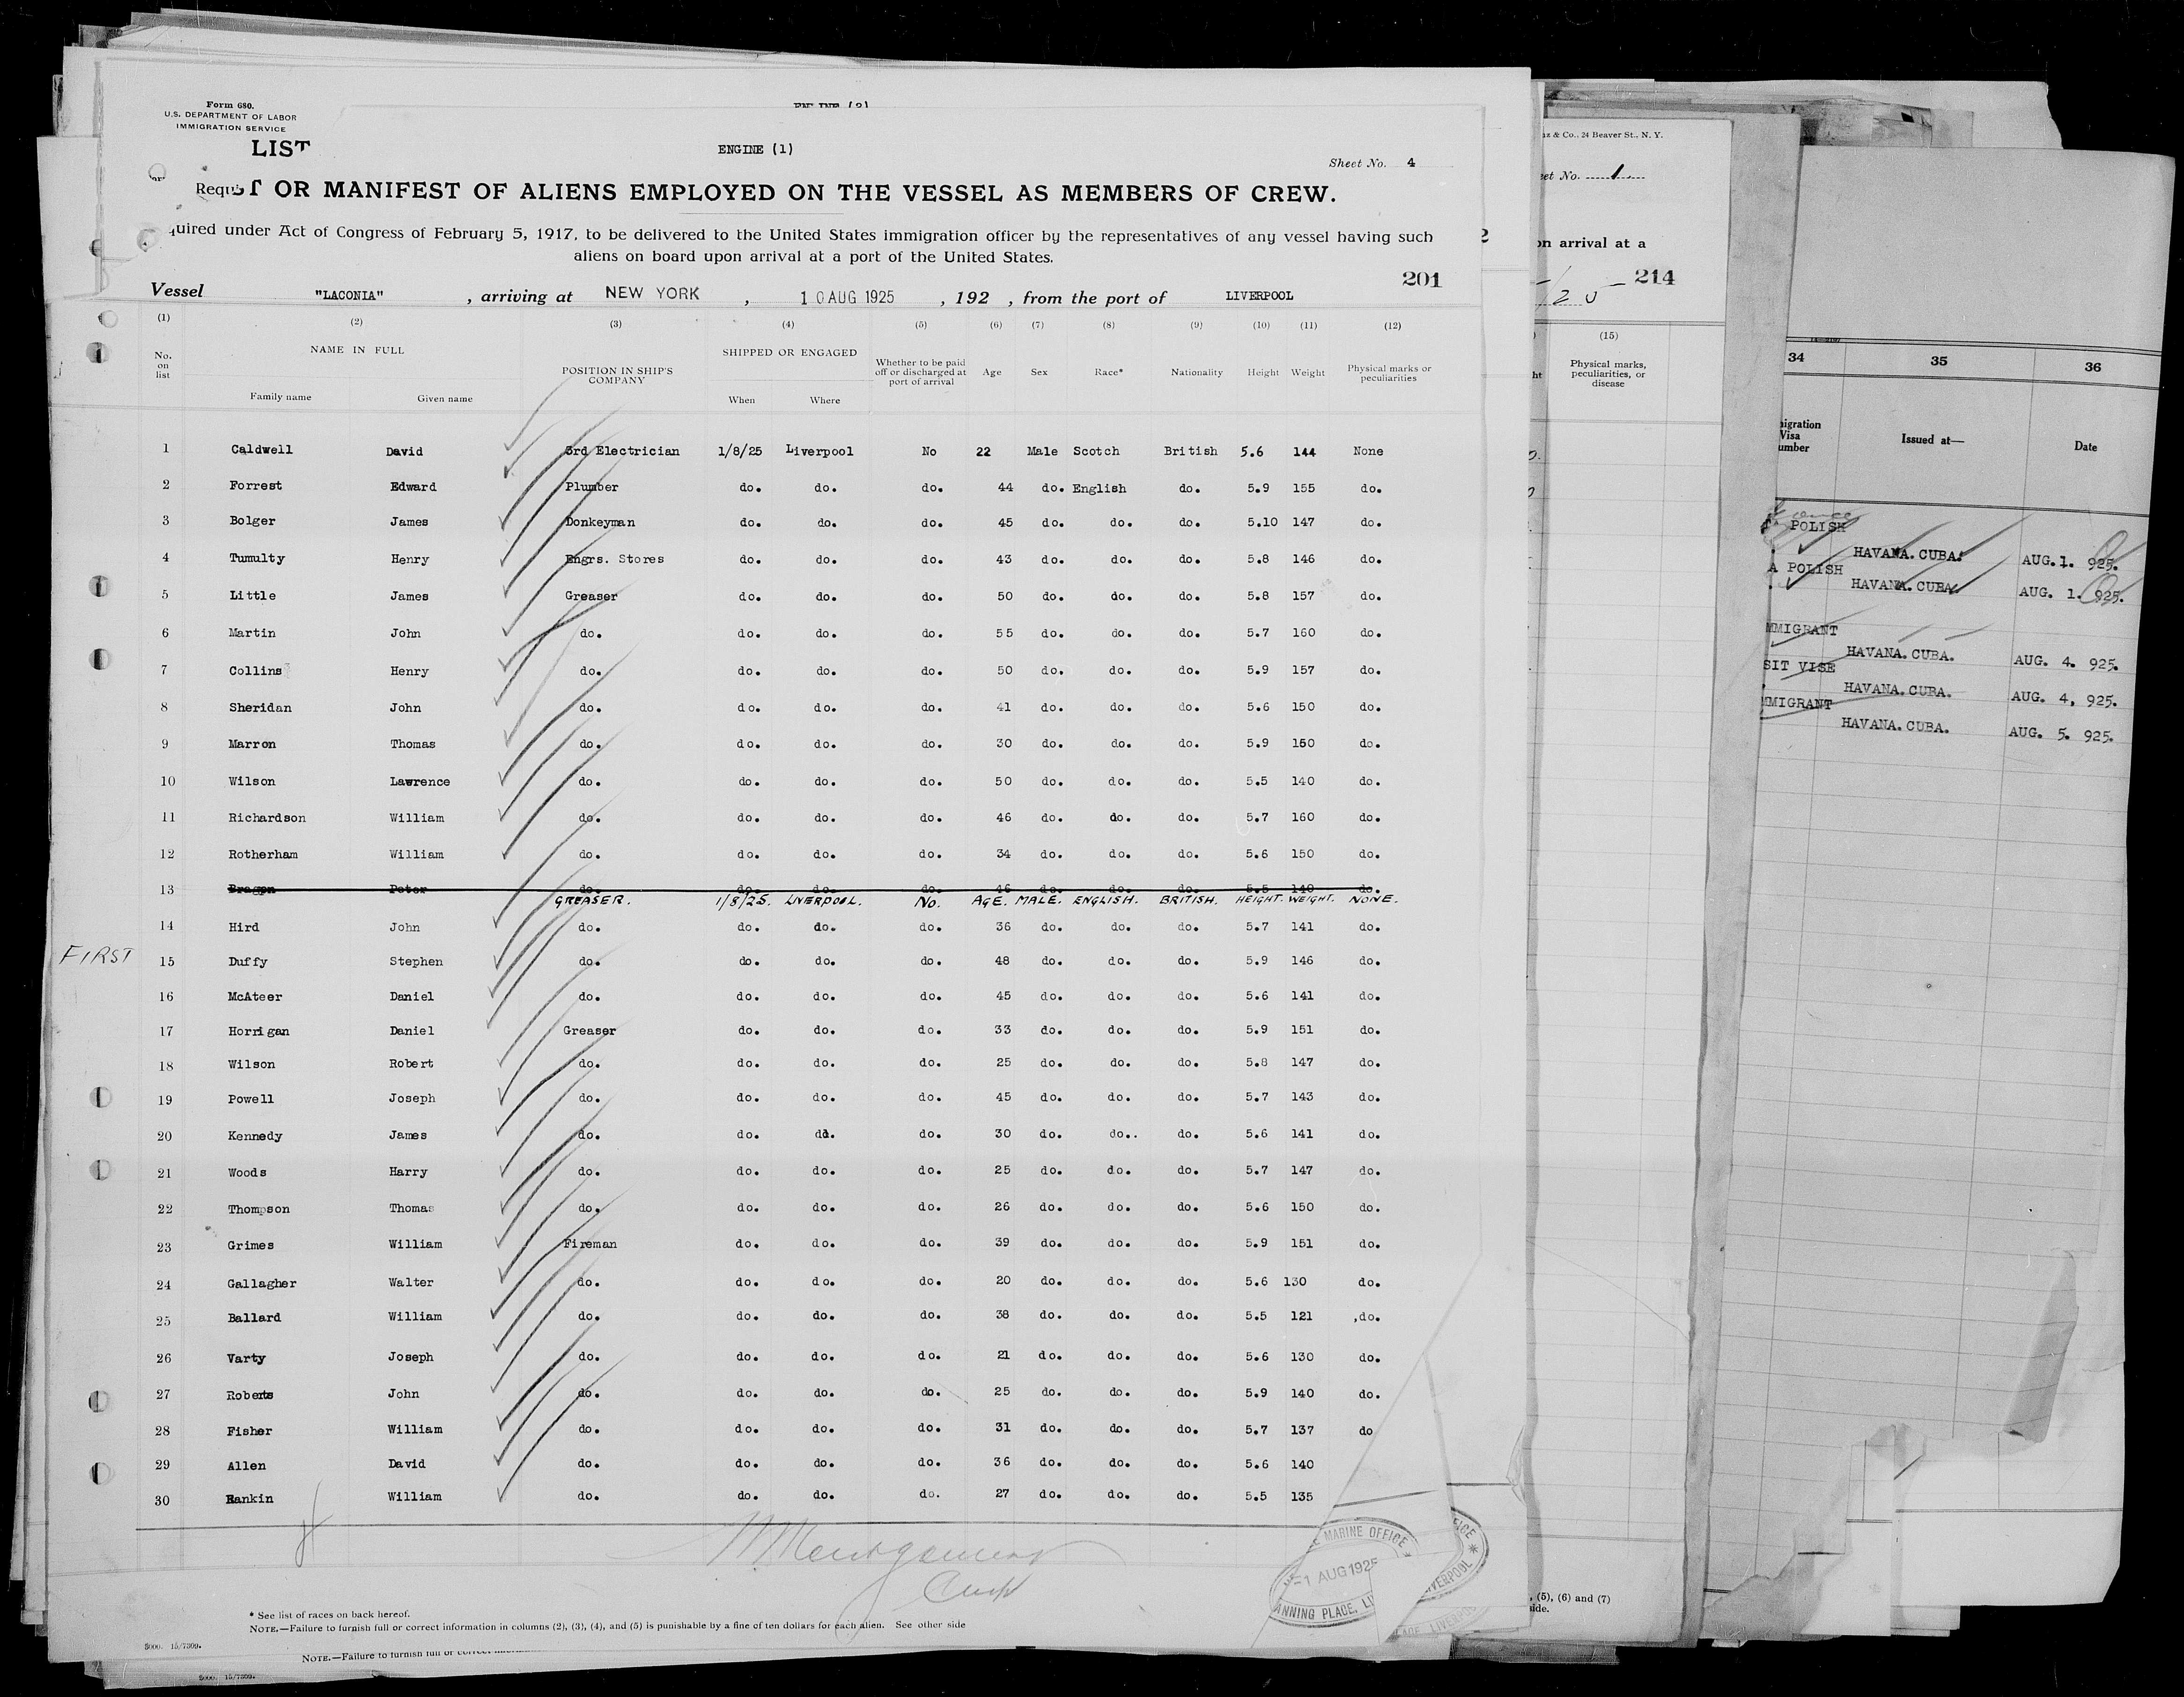 Form 680.
U.S. DEPARTMENT OF LABOR
IMMIGRATION SERVICE
LIST
ENGINE (1)
Sheet No. 4
ST OR MANIFEST OF ALIENS EMPLOYED ON THE VESSEL AS MEMBERS OF CREW.
quired under Act of Congress of February 5, 1917, to be delivered to the United States immigration officer by the representatives of any vessel having such
aliens on board upon arrival at a port of the United States.
201
Vessel "LACONIA" , arriving at NEW YORK , 10 AUG 1925 , 192 , from the port of LIVERPOOL
(1) (2) (3) (4) (5) (6) (7) (8) (9) (10) (11) (12)
No. on list NAME IN FULL Family name Given name POSITION IN SHIP'S COMPANY SHIPPED OR ENGAGED When Where Whether to be paid off or discharged at port of arrival Age Sex Race* Nationality Height Weight Physical marks or peculiarities
1 Caldwell David 3rd Electrician 1/8/25 Liverpool No 22 Male Scotch British 5.6 144 None
2 Forrest Edward Plumber do. do. do. 44 do. English do. 5.9 155 do.
3 Bolger James Donkeyman do. do. do. 45 do. do. do. 5.10 147 do.
4 Tumulty Henry Engrs. Stores do. do. do. 43 do. do. do. 5.8 146 do.
5 Little James Greaser do. do. do. 50 do. do. do. 5.8 157 do.
6 Martin John do. do. do. do. 55 do. do. do. 5.7 160 do.
7 Collins Henry do. do. do. do. 50 do. do. do. 5.9 157 do.
8 Sheridan John do. do. do. do. 41 do. do. do. 5.6 150 do.
9 Marron Thomas do. do. do. do. 30 do. do. do. 5.9 150 do.
10 Wilson Lawrence do. do. do. do. 50 do. do. do. 5.5 140 do.
11 Richardson William do. do. do. do. 46 do. do. do. 5.7 160 do.
12 Rotherham William do. do. do. do. 34 do. do. do. 5.6 150 do.
13 Peter do. do. do. do. 46 do. do. do. 5.5 140 do.
GREASER. 1/8/25. LIVERPOOL. No. AGE. MALE. ENGLISH. BRITISH. HEIGHT. WEIGHT. NONE.
14 Hird John do. do. do. do. 36 do. do. do. 5.7 141 do.
FIRST 15 Duffy Stephen do. do. do. do. 48 do. do. do. 5.9 146 do.
16 McAteer Daniel do. do. do. do. 45 do. do. do. 5.6 141 do.
17 Horrigan Daniel Greaser do. do. do. 33 do. do. do. 5.9 151 do.
18 Wilson Robert do. do. do. do. 25 do. do. do. 5.8 147 do.
19 Powell Joseph do. do. do. do. 45 do. do. do. 5.7 143 do.
20 Kennedy James do. do. dd. do. 30 do. do.. do. 5.6 141 do.
21 Woods Harry do. do. do. do. 25 do. do. do. 5.7 147 do.
22 Thompson Thomas do. do. do. do. 26 do. do. do. 5.6 150 do.
23 Grimes William Fireman do. do. do. 39 do. do. do. 5.9 151 do.
24 Gallagher Walter do. do. do. do. 20 do. do. do. 5.6 130 do.
25 Ballard William do. do. do. do. 38 do. do. do. 5.5 121 ,do.
26 Varty Joseph do. do. do. do. 21 do. do. do. 5.6 130 do.
27 Roberts John do. do. do. do. 25 do. do. do. 5.9 140 do.
28 Fisher William do. do. do. do. 31 do. do. do. 5.7 137 do
29 Allen David do. do. do. do. 36 do. do. do. 5.6 140
30 Rankin William do. do. do. do. 27 do. do. do. 5.5 135
Montgomery
MARINE OFFICE
-1 AUG 1925
ANNING PLACE, LI
LIVERPOOL
* See list of races on back hereof.
NOTE.—Failure to furnish full or correct information in columns (2), (3), (4), and (5) is punishable by a fine of ten dollars for each alien. See other side
5000. 15/7509.
NOTE.—Failure to furnish full or correct
5000. 15/7509.
& Co., 24 Beaver St., N. Y.
et No. 1
on arrival at a
214
(15)
Physical marks, peculiarities, or disease
, (5), (6) and (7)
side.
34 35 36
migration Visa umber Issued at— Date
POLISH
HAVANA.CUBA. AUG.1. 925.
A POLISH
HAVANA.CUBA. AUG. 1. 925.
MMIGRANT
HAVANA.CUBA. AUG. 4. 925.
SIT VISE
HAVANA.CUBA. AUG. 4, 925.
MMIGRANT
HAVANA.CUBA. AUG. 5. 925.